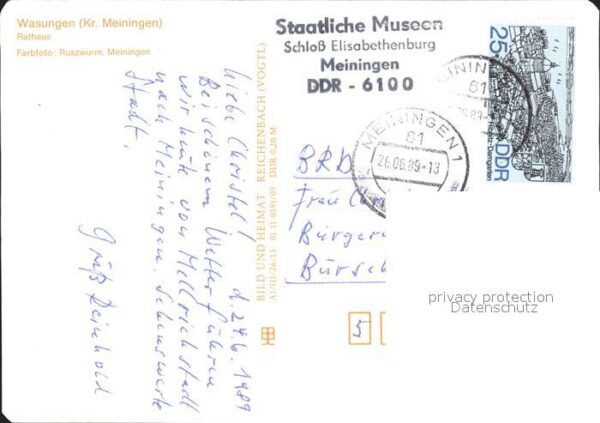 Wasungen (Kr. Meiningen)
Rathaus
Farbfoto: Ruszwurm, Meiningen
Staatliche Museen
Schloß Elisabethenburg
Meiningen
DDR - 6100
MEININGEN 1
61
26.06.89-13
MEININ
61
25
DDR
d. 24.6.1989
Liebe Christel!
Bei schönem Wetter fuhren
wir heute von Mellrichstadt
nach Meiningen. Sehenswerte
Stadt.
Gruß Reinhold
BILD UND HEIMAT · REICHENBACH (VOGTL)
A1/III/26/13 01 11 0191/05 DDR 0,20 M
BRD
Frau
Bürger
Bürsch
5
privacy protection
Datenschutz